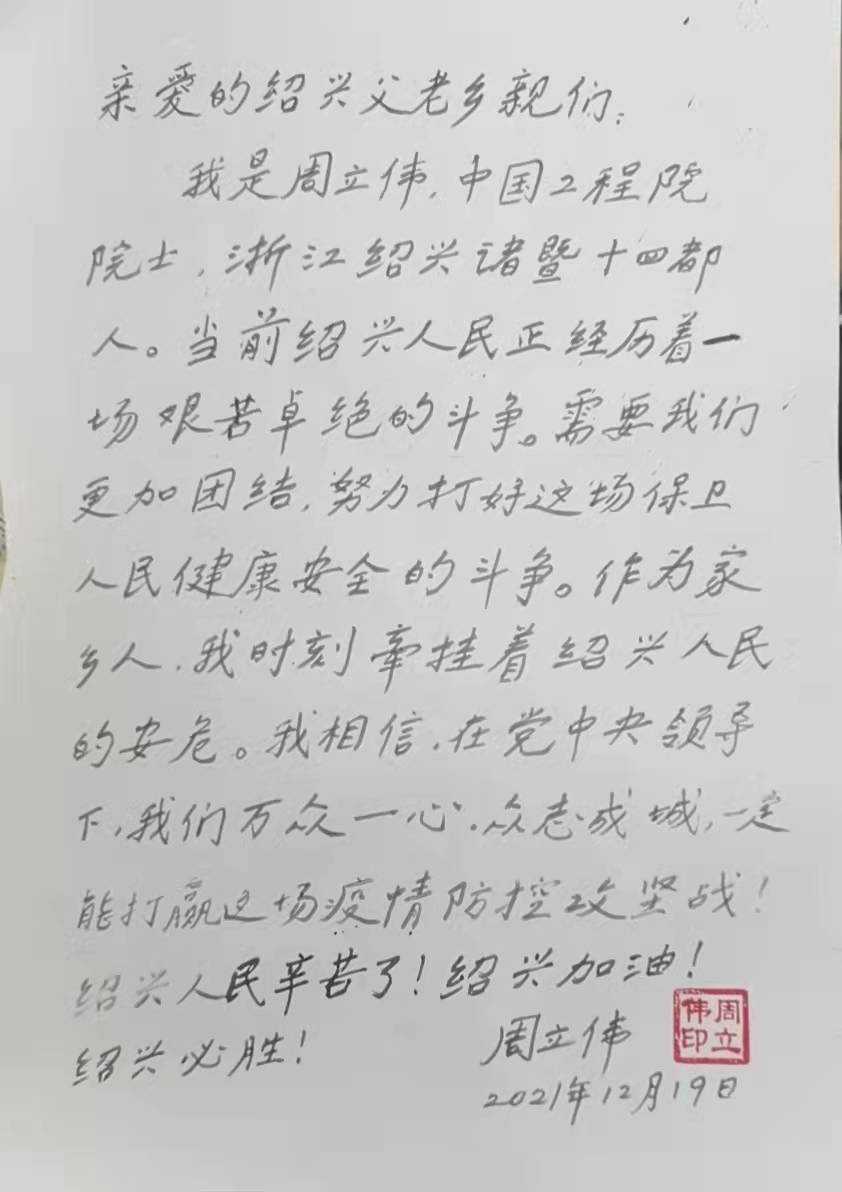 亲爱的绍兴父老乡親们:
我是周立伟,中国工程院
院士,浙江绍兴诸暨十四都
人。当前绍兴人民正经历着一
场艰苦卓绝的斗争。需要我们
更加团结,努力打好这场保卫
人民健康安全的斗争。作为家
乡人,我时刻牵挂着绍兴人民
的安危。我相信,在党中央领导
下,我们万众一心,众志成城,一定
能打赢这场疫情防控攻坚战!
绍兴人民辛苦了!绍兴加油!
绍兴必胜!
周立伟
周立伟印
2021年12月19日